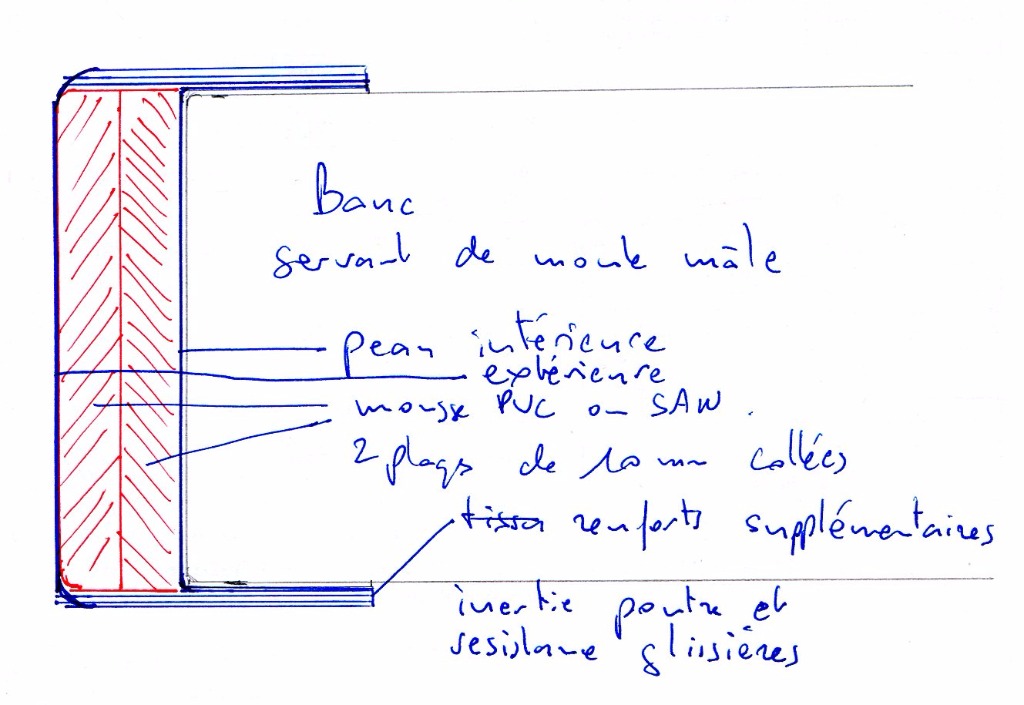 Banc
servant de moule mâle
peau intérieure
extérieure
mousse PVC ou SAN.
2 plaqs de 10 mm collées
tissu renforts supplémentaires
inertie poutre et
resistance glissières